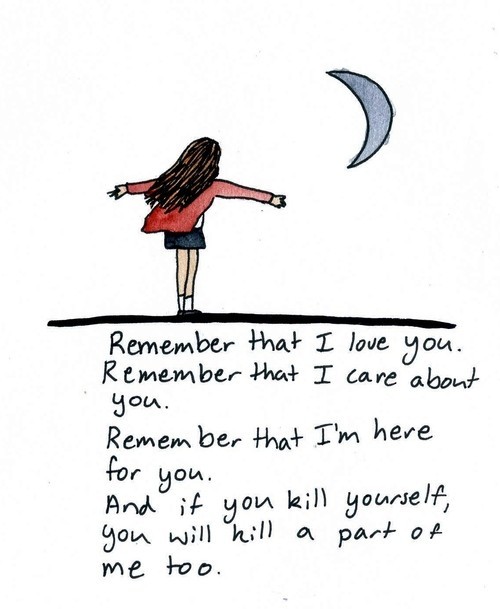 Remember that I love you.
Remember that I care about
you.
Remember that I'm here
for you.
And if you kill yourself,
you will kill a part of
me too.